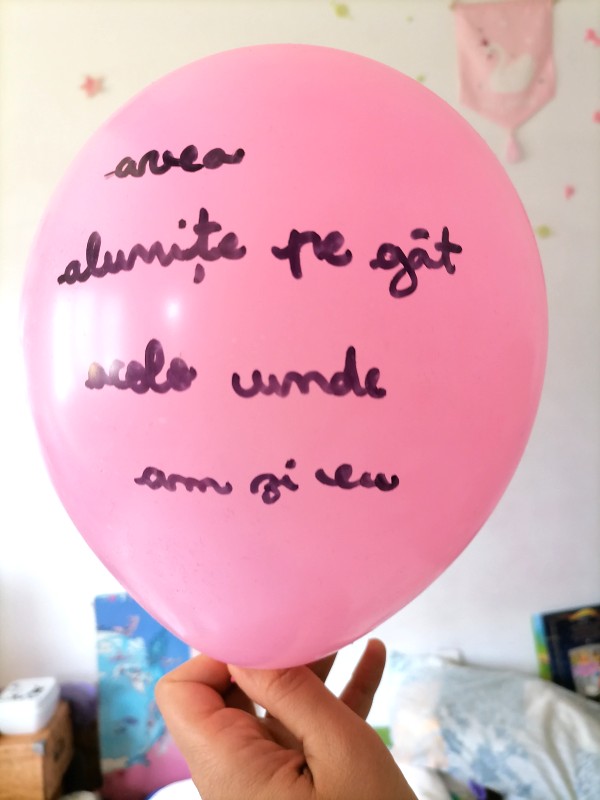 avea
alunițe pe gât
acolo unde
am și eu